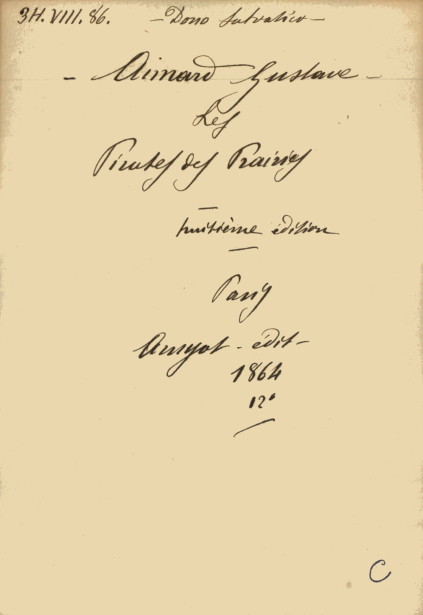 34.VIII.86. - Dono Salvatico -
- Aimard Gustave -
Les
Pirates des Prairies
huitième édition
Paris
Amyot - édit -
1864
12°
C